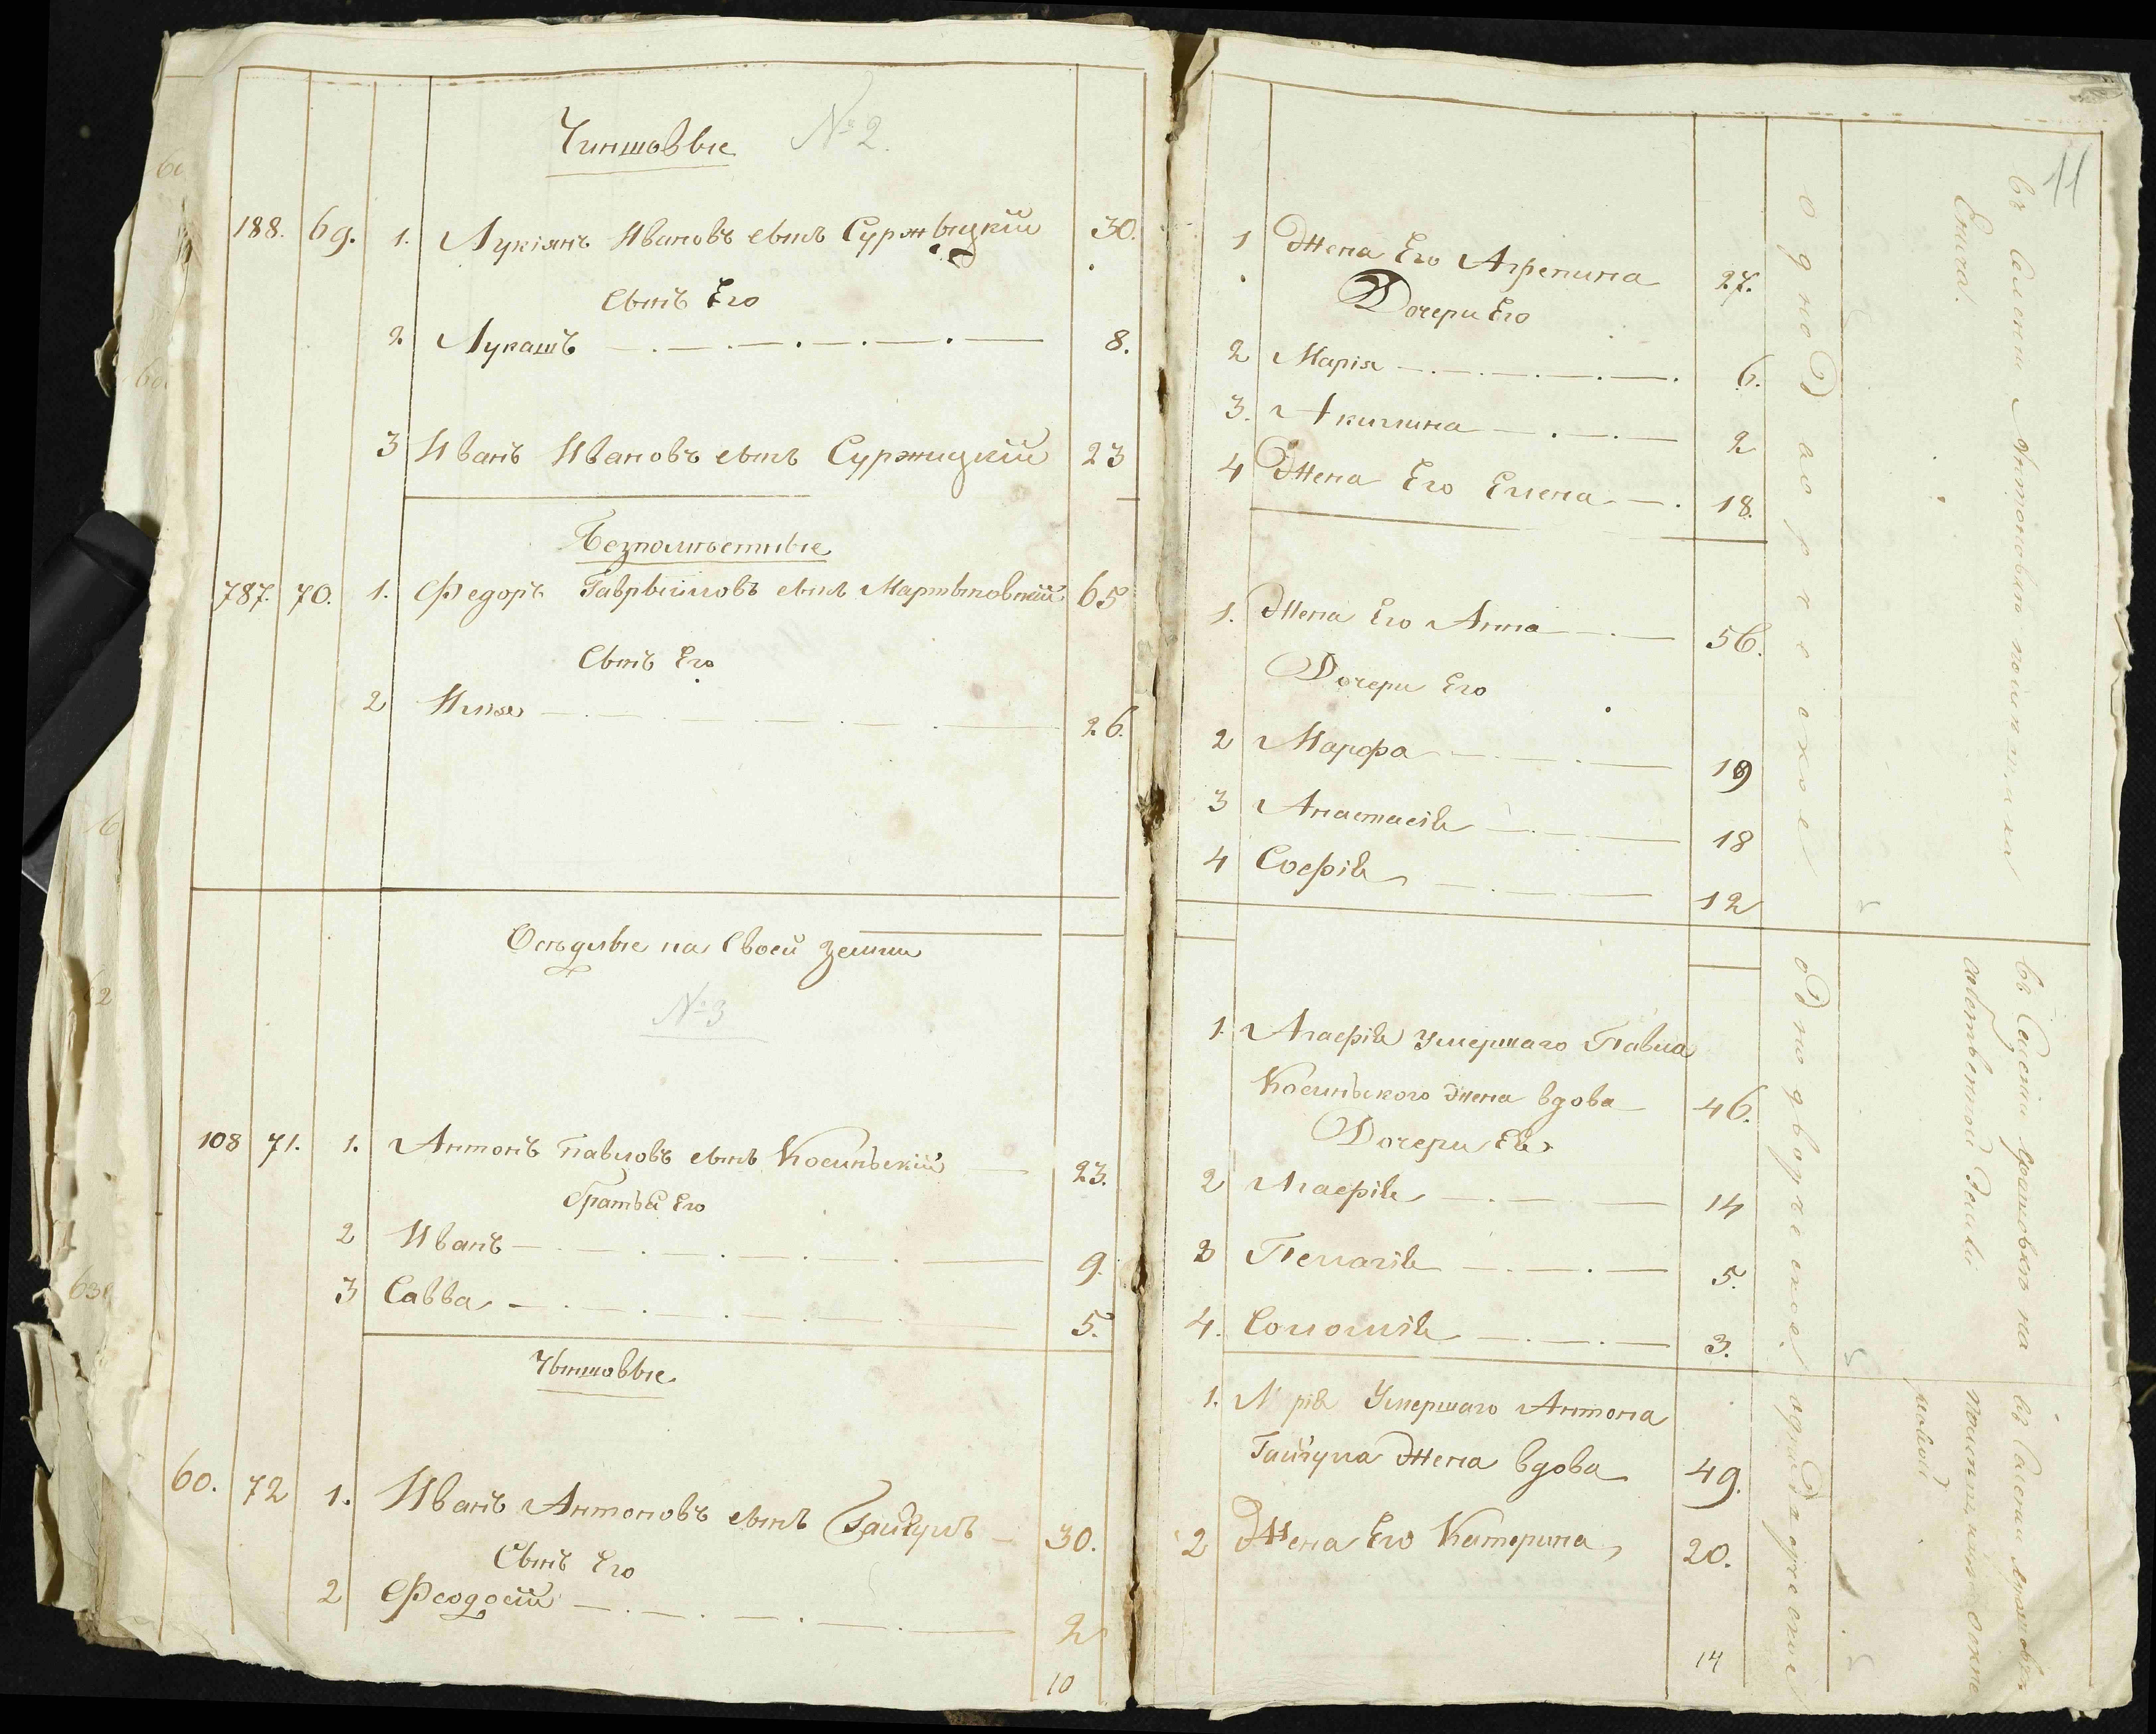 Чиншовые № 2.
188. 69. 1. Лукіянъ Ивановъ сынъ Суржицкій 30.
Сынъ Его
2 Лукашъ 8.
3 Иванъ Ивановъ сынъ Суржицкій 23
Безпомѣстные
787. 70. 1. Федоръ Гаврыиловъ сынъ Мартыновскій 65
Сынъ Его
2 Илья 26.
Осѣдлые на Своей земли
№ 3
108 71. 1. Антонъ Павловъ сынъ Косинскій 23.
братья Его
2 Иванъ 9.
3 Савва 5.
Чыншовые
60. 72 1. Иванъ Антоновъ сынъ Гайгулъ 30.
Сынъ Его
2 Феодосій 2
10
11
1 Жена Его Агрепина 27.
Дочери Его
2 Марія 6.
3. Акилина 2
4 Жена Его Елена 18.
1. Жена Его Анна 56.
Дочери Его
2 Марфа 19
3 Анастасія 18
4 Софія 12
1. Агафія умершаго Павла
Косинского жена вдова 46.
Дочери Ея
2 Агафія 14
3 Пелагія 5.
4. Соломія 3.
1. Умершаго Антона
Гайгула Жена вдова 49.
2 Жена Его Катерина 20.
14
однодворческое
въ Селеніи помѣщика
однодворческое
въ Селеніи на
собственной земли
однодворческое
въ Селеніи